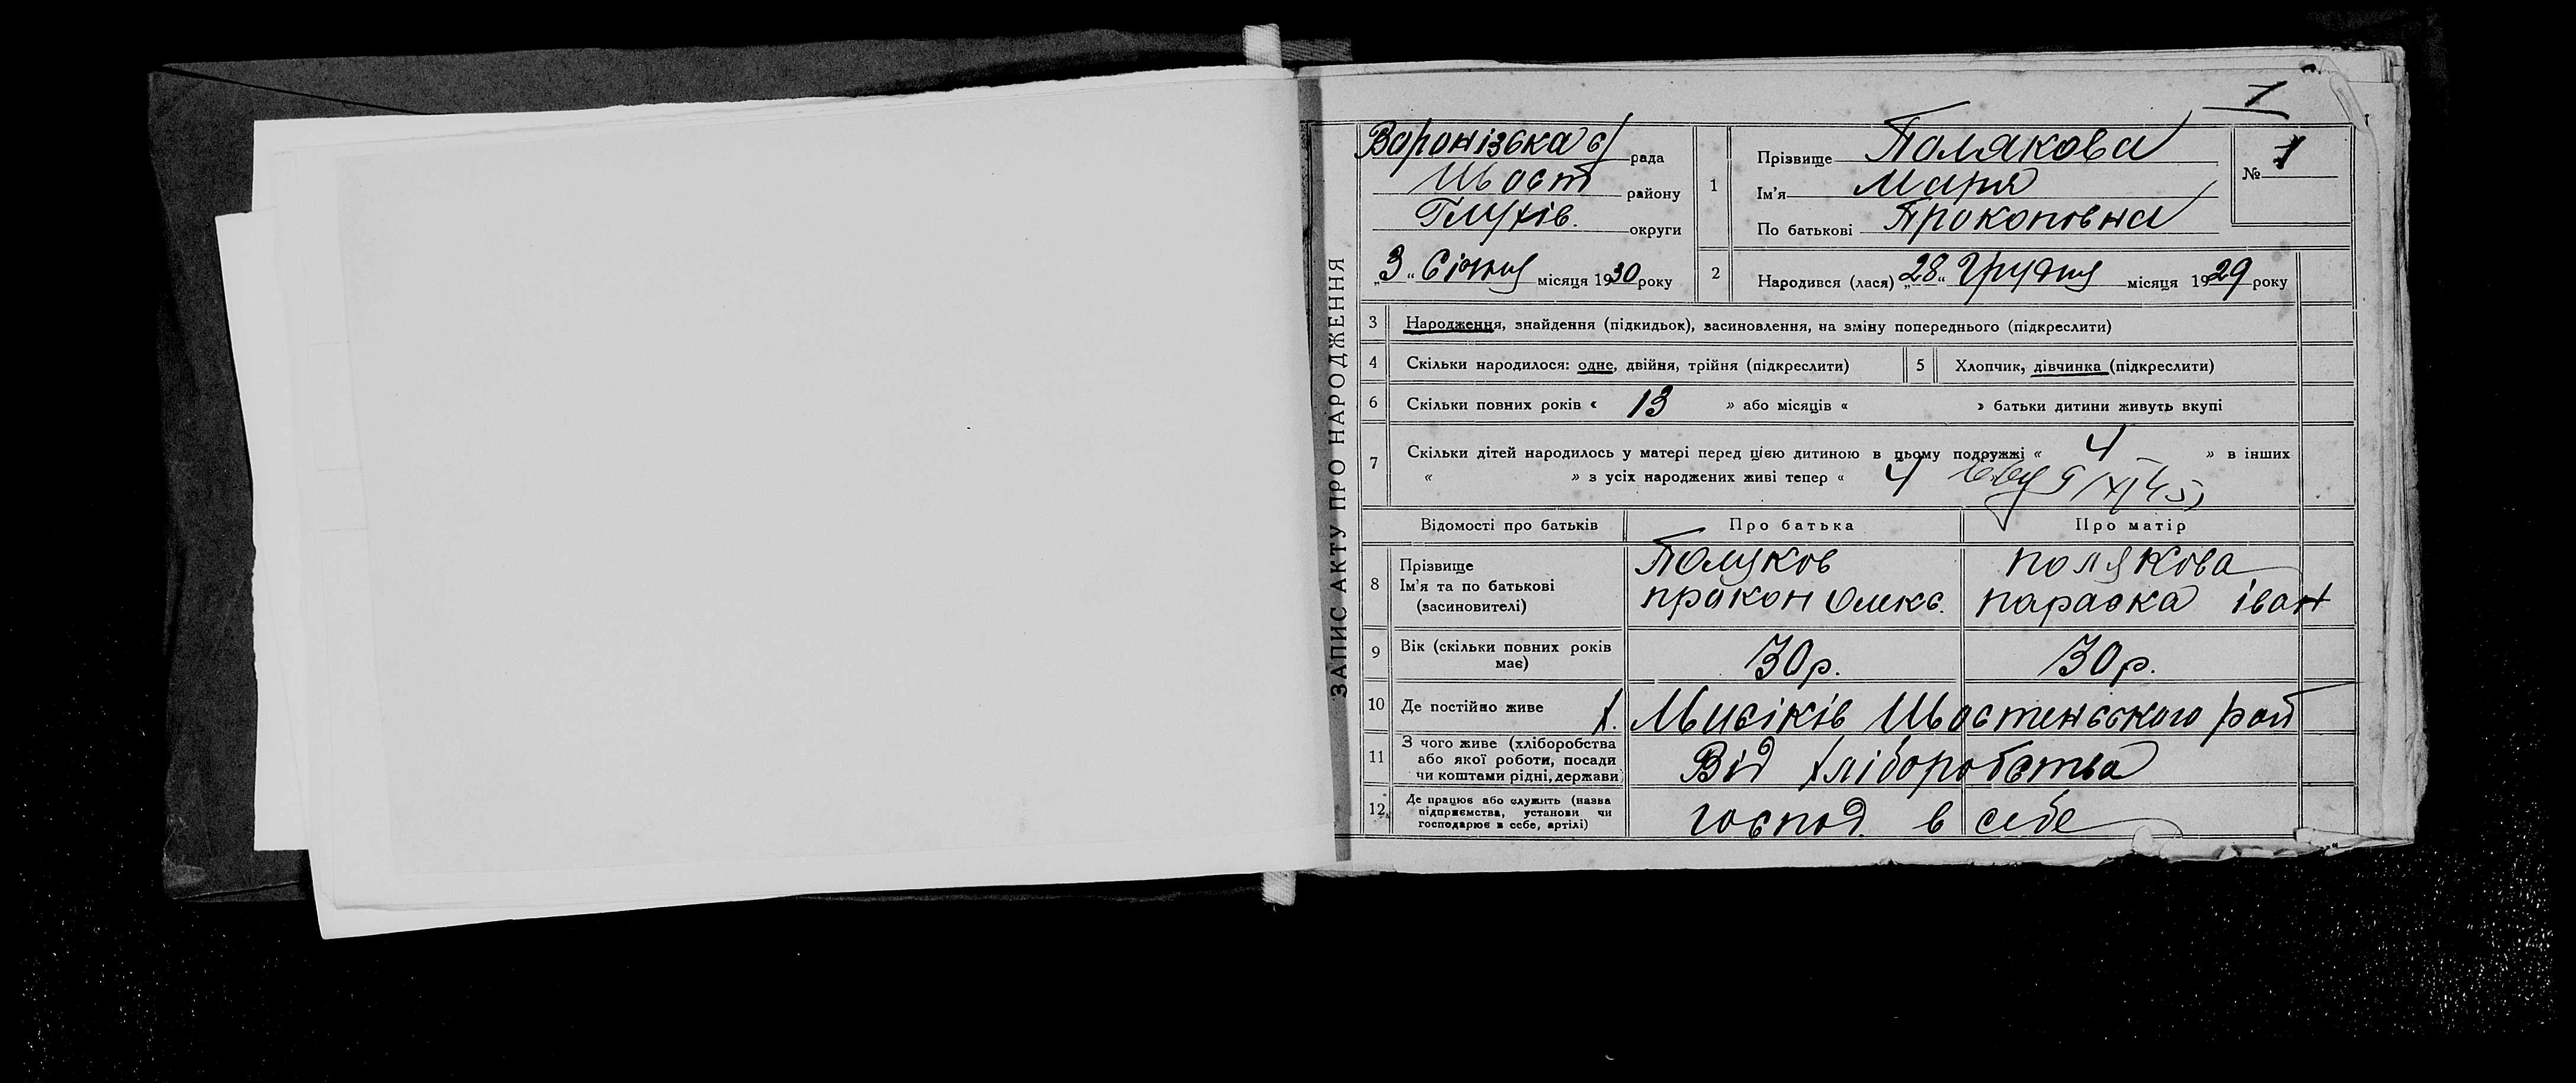 1
ЗАПИС АКТУ ПРО НАРОДЖЕННЯ
Воронізька с/ рада
Шост району
Глухів. округи
„3“ Січня місяця 1930 року
1
Прізвище Полякова
Ім'я Марія
По батькові Прокоповна
№ 1
2
Народився (лася) „28“ Грудня місяця 1929 року
3 Народження, знайдення (підкидьок), засиновлення, на зміну попереднього (підкреслити)
4 Скільки народилося: одне, двійня, трійня (підкреслити)
5 Хлопчик, дівчинка (підкреслити)
6 Скільки повних років « 13 » або місяців « » батьки дитини живуть вкупі
7 Скільки дітей народилось у матері перед цією дитиною в цьому подружжі « 4 » в інших
« » з усіх народжених живі тепер « 4
Відомості про батьків Про батька Про матір
8 Прізвище
Ім'я та по батькові
(засиновителі)
Поляков
прокоп Олекс.
полякова
параска іван
9 Вік (скільки повних років
має)
30 р. 30 р.
10 Де постійно живе х. Мисіків Шостенського рай
11 З чого живе (хліборобства
або якої роботи, посади
чи коштами рідні, держави)
Від хліборобства
12 Де працює або служить (назва
підприємства, установи чи
господарює в себе, артілі)
господ. в себе